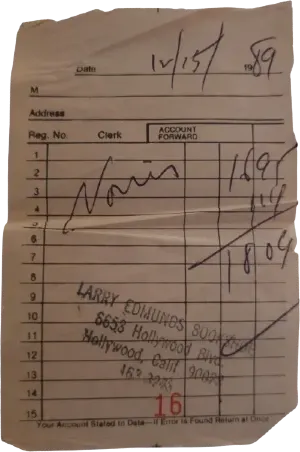 Date 12/15/ 1989
M
Address
Reg. No. Clerk ACCOUNT FORWARD
1
2 1695
3
4 1 09
5
6 1804
7
8
9 LARRY EDMUNDS
10 6653 Hollywood Blvd.
11 Hollywood, Calif
12
13
14
15 16
Your Account Stated to Date—If Error Is Found Return at Once